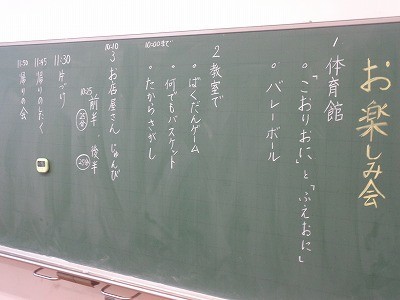 お楽しみ会
1 体育館
。「こおりおに」と「ふえおに」
。バレーボール
2 教室で
。ばくだんゲーム
。何でもバスケット
。たからさがし
10:00まで
3 お店屋さん じゅんび
10:10
10:25 前半・後半
25分 25分
11:30 片づけ
11:45 帰りのしたく
11:50 帰りの会